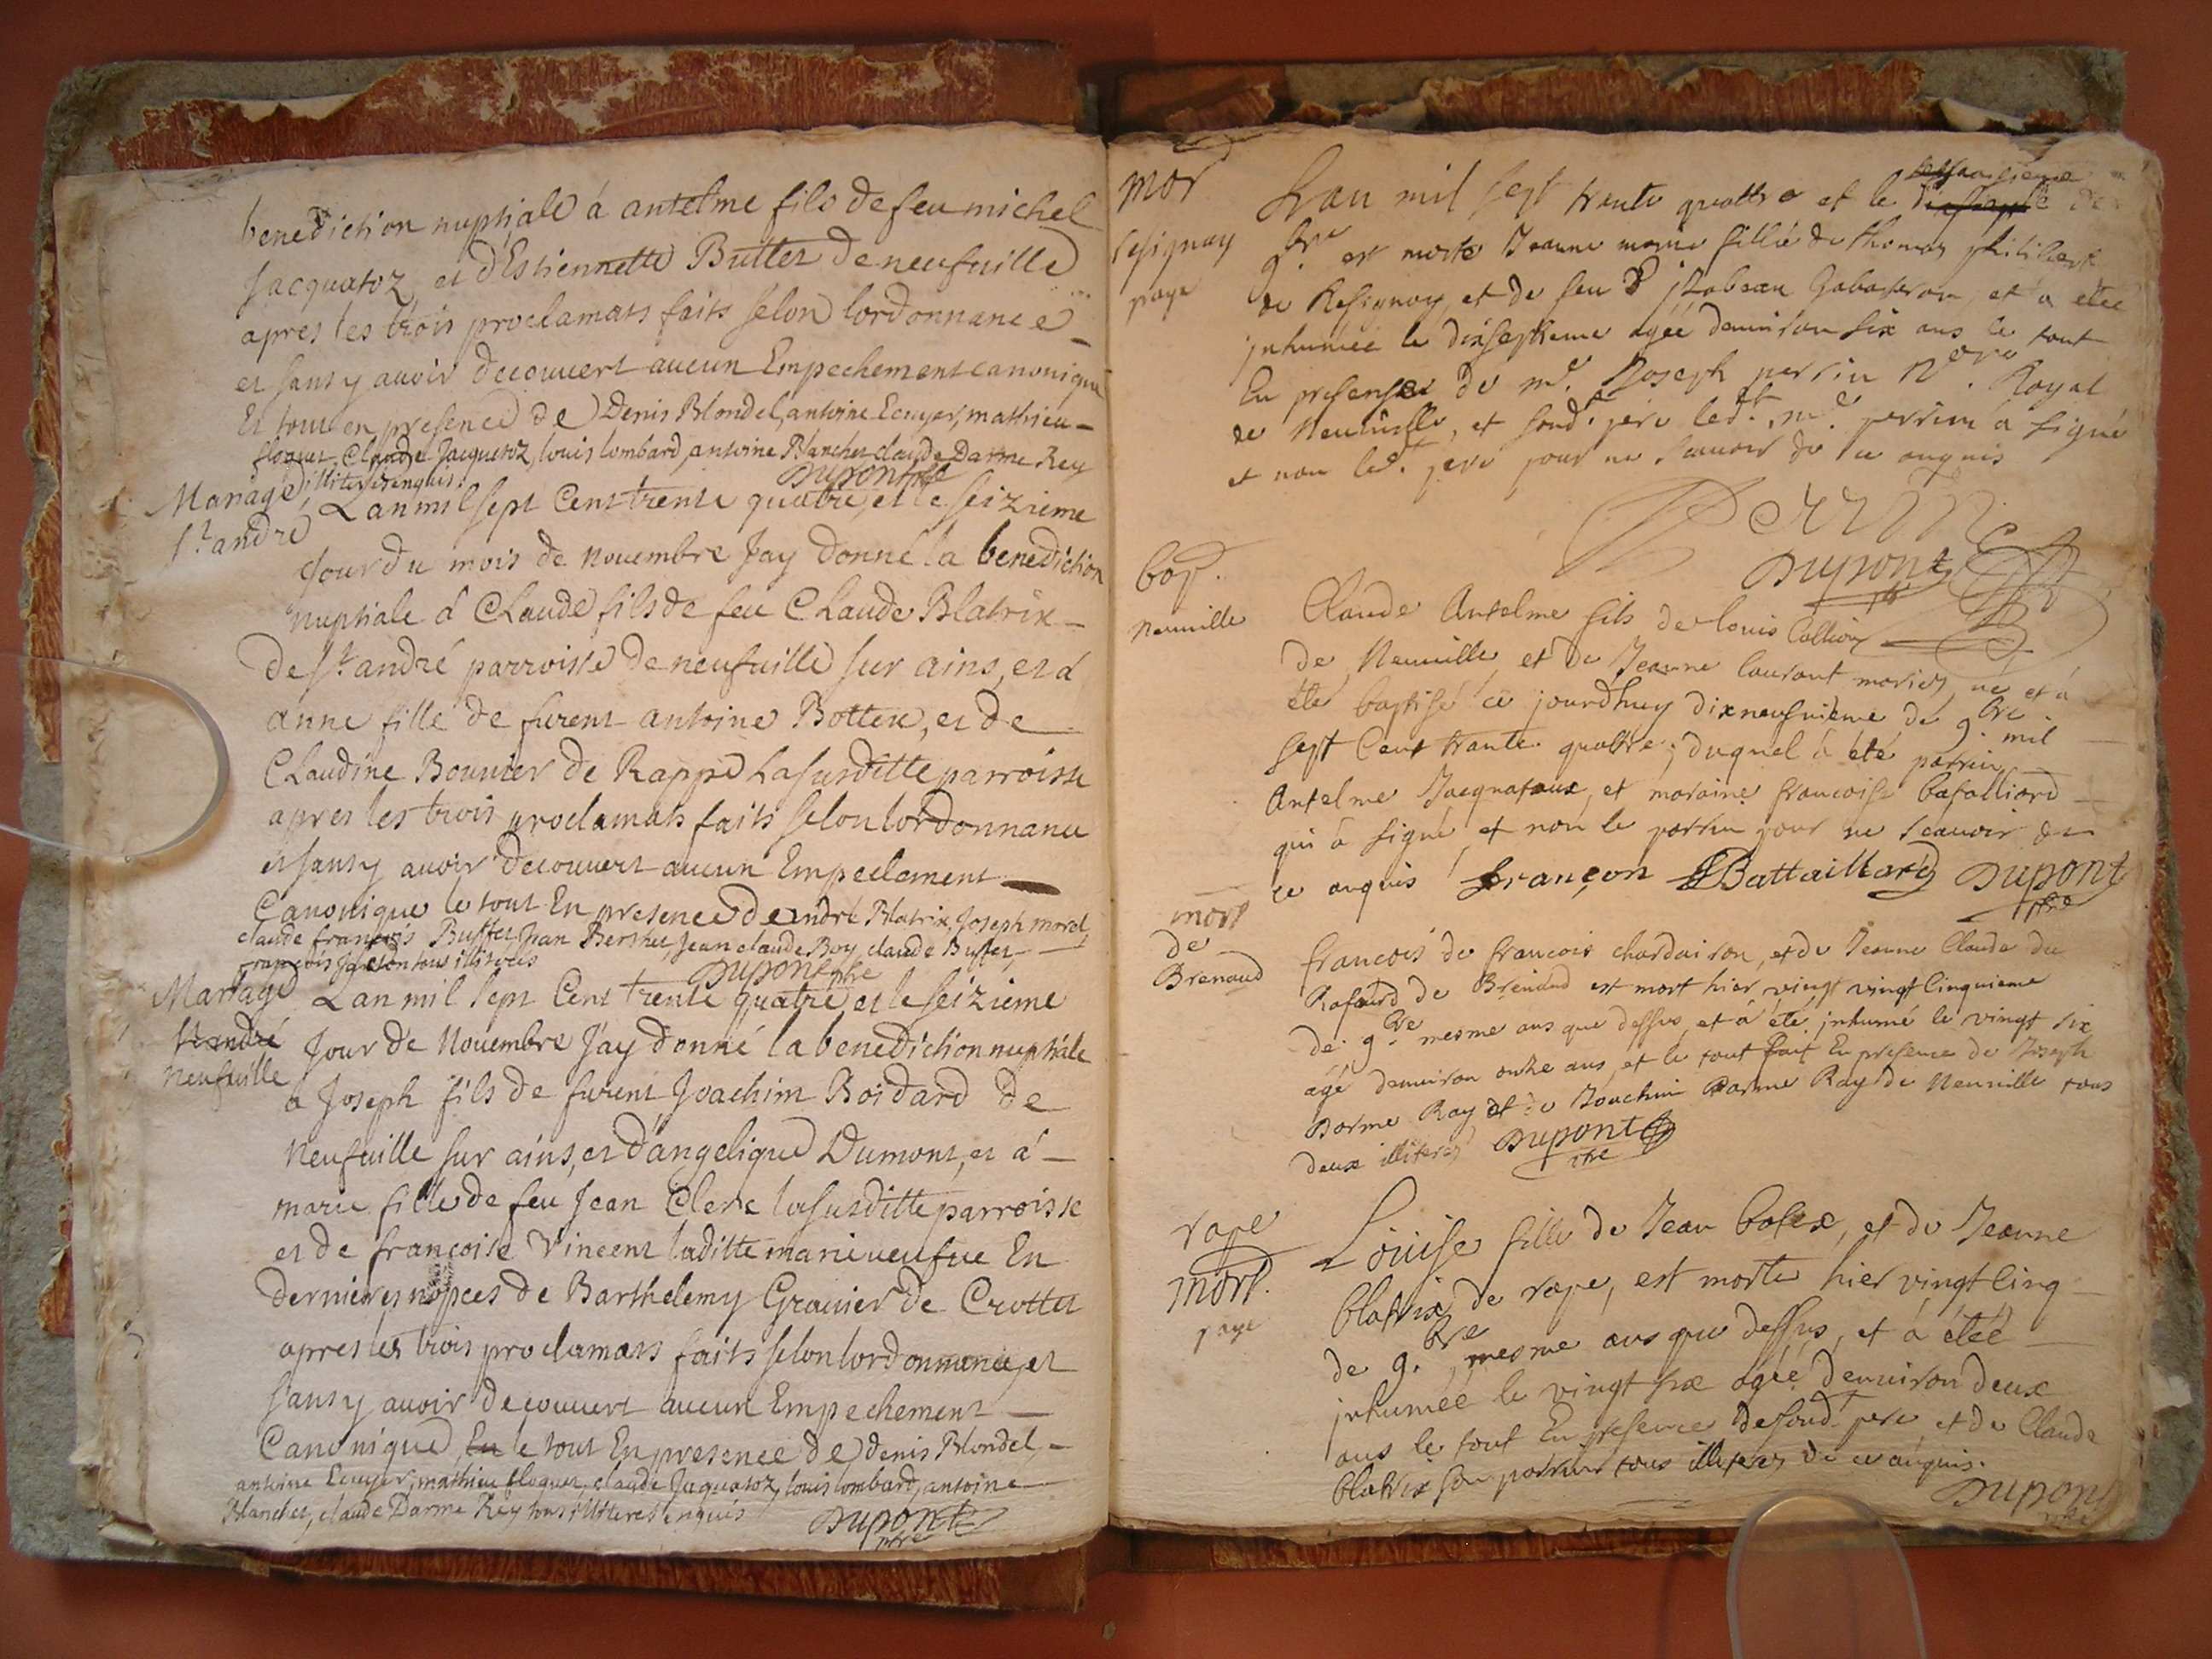 benediction nuptiale á antelme fils de feu michel
Jacquatoz, et d'Estiennette Buttet de neufuille
apres les trois proclamats faits selon lordonnance
et sans y auoir decouuert aucun Empechement canonique
Et tout en presence de Denis Blondel, antoine Ecuyer, mathieu
floquet, Claude Jacquetoz, louis lombard, antoine Blanchet claude Darme Rey
illiteres enquis. Dupont ptre
Mariage
st andré
Lan mil sept Cent trente quatre, et le seizieme
Jour du mois de nouembre Jay donné la benediction
nuptiale á Claude fils de feu Claude Blatrix
de st andré parroisse de neufuille sur ains, et á
anne fille de furent antoine Bottex, et de
Claudine Bouuier de Rappe Lasusditte parroisse
apres les trois proclamats faits selon lordonnance
et sans y auoir decouuert aucun Empechement
Canonique le tout En presence de andré Blatrix, Joseph morel,
claude françois Buffet, Jean Berthet, Jean claude Boy, claude Buffet,
françois tous illiteres
Dupont ptre
Mariage
st andré
neufuille
Lan mil sept Cent trente quatre, et le seizieme
Jour de Nouembre J'ay donné la benediction nuptiale
a Joseph fils de furent Joachim Boidard de
Neufuille sur ains, et d'angelique Dumont, et á
marie fille de feu Jean Clerc lasusditte parroisse
et de francoise Vincent laditte marie ueufue En
dernieres nopces de Barthelemy Grauier de Crottet
apres les trois proclamats faits selon lordonnance, et
sans y auoir decouuert aucun Empechement
Canonique, En le tout En presence de denis Blondel,
antoine Ecuyer, mathieu floquet, claude Jaquatoz, louis lombard, antoine
Blanchet, claude Darme Rey tous illiteres enquis Dupont
ptre
mor
resignay
paye
Lan mil sept trente quattre et le de
9.bre est morte Jeanne marie fillie de thomas philibert
de Resignay, et de feu jsabeau Gabateron, et a étéé
jnhumée le dixseptieme agée denuiron six ans le tout
En presense de mr. Joseph perrin Nere. Royal
de Neuuille, et soud.t pere led.t mr. perrin á signé
et non led.t pere pour ne scauoir de ce anquis
Perrin
Dupont ptre
bap.
neuuille
Claude Antelme fils de louis Collion
de Neuuille, et de Jeanne laurant mariez, né et á
été baptisé ce jourdhuy dixneufuieme de 9.bre mil
sept Cent trante quattre; duquel á été parrin
Antelme Jacquataux, et maraine francoise batalliard
qui á signé, et non le parrin pour ne scauoir de
ce anquis françon Battaillard Dupont
ptre
mort
de
Brenaud
francois de francois chardairon, et de Jeanne Claude du
Rafourd de Brenaud est mort hier vingt vingt Cinquieme
de 9.bre mesme ans que dessus, et á été jnhumé le vingt six
agé denuiron onze ans, et le tout fait En presence de Joseph
Darme Ray et de Jouachim Darme Ray de Neuuille tous
deux illiterez Dupont
ptre
rape
mort.
paye
Louise fille de Jean batex, et de Jeanne
blatrix de rape, est morte hier vingt Cinq
de 9.bre, mesme ans que dessus, et á étéé
jnhuméé le vingt six agéé denuiron deux
ans le tout En presence de soud.t pere, et de Claude
blatrix son parrin tous illiterez de ce anquis.
Dupont
ptre